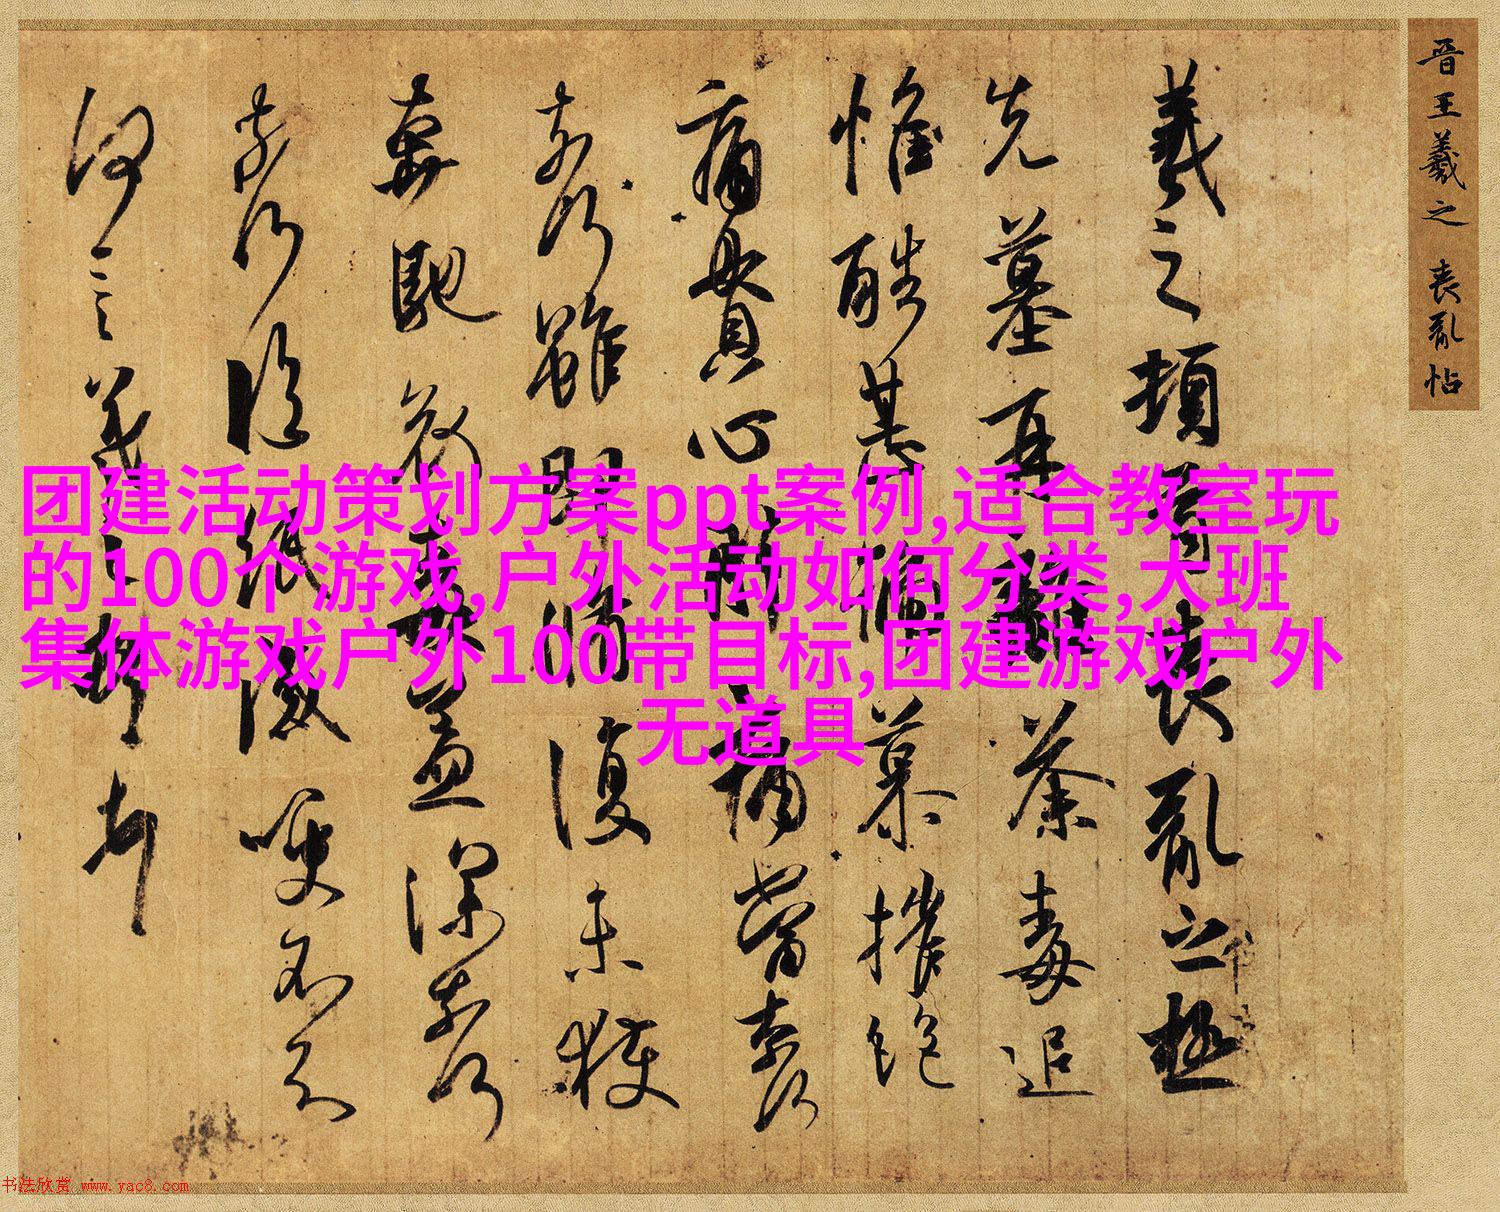 晋王羲之 喪亂帖
羲之頓首喪亂之極
先墓再離荼毒追
惟酷甚號慕摧絕
痛貫心肝痛當奈何
奈何雖即脩復未獲
奔馳哀毒益深奈何
奈何臨紙感哽不知
何言羲之頓首頓首
团建活动策划方案ppt案例,适合教室玩
的100个游戏,户外活动如何分类,大班
集体游戏户外100带目标,团建游戏户外
无道具
书法欣赏 www.yac8.com